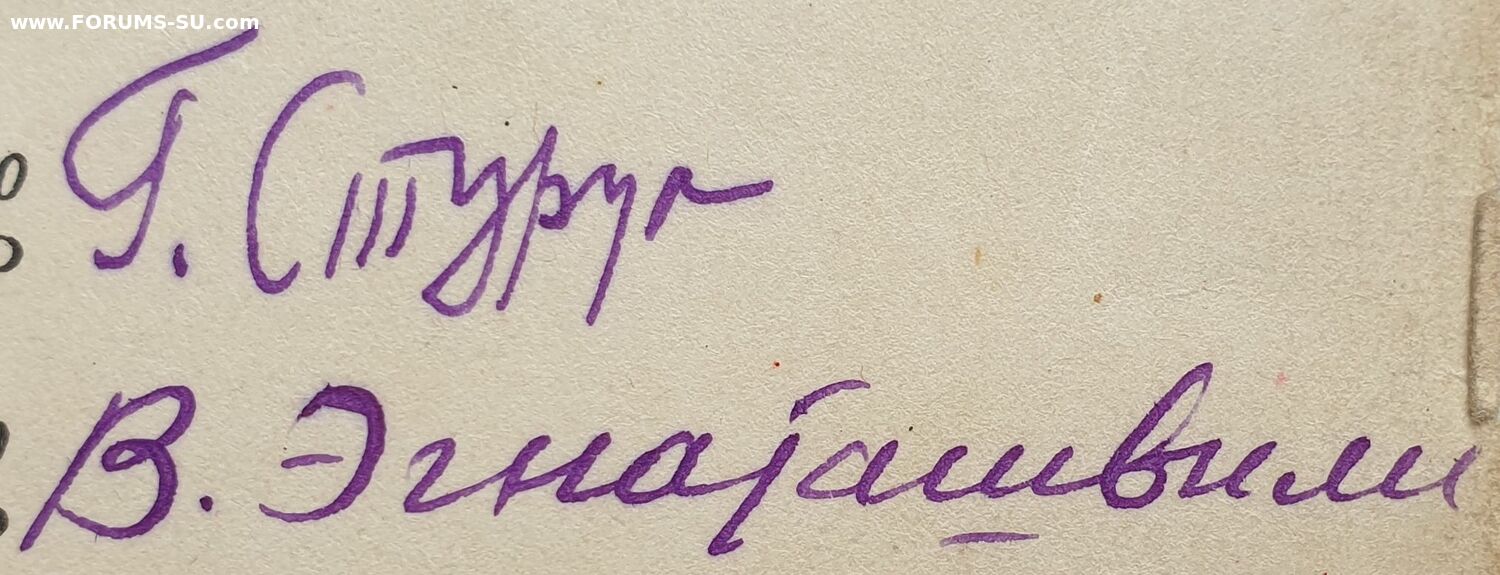 www.FORUMS-SU.com
Г. Стуруа
В. Эгнаташвили